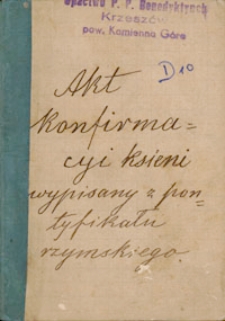 Opactwo P. P. Benedyktynek
Krzeszów
pow. Kamienna Góra
D 10
Akt
konfirma=
cyi ksieni
wypisany z pon=
tyfikału
rzymskiego.